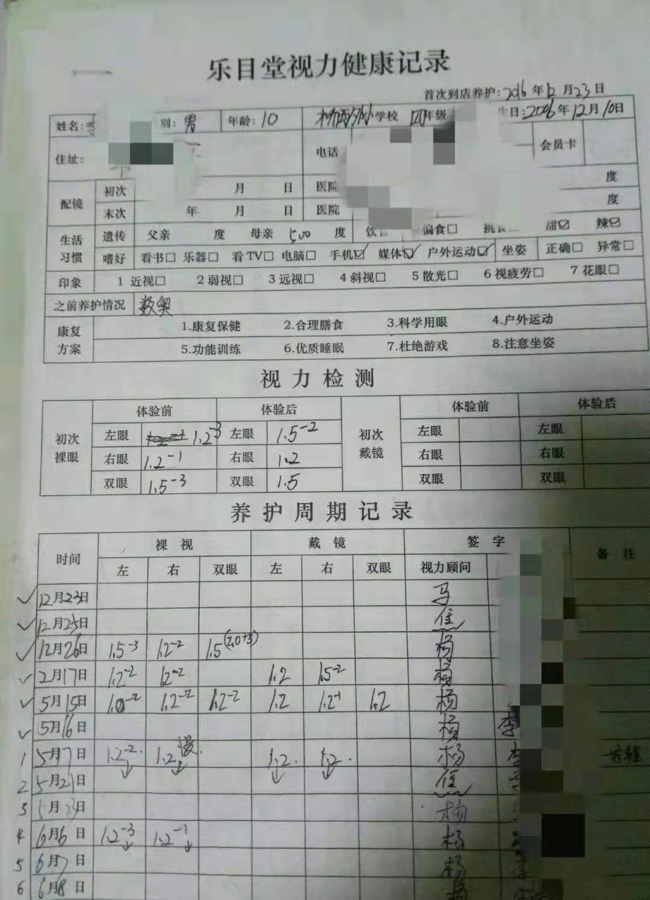 乐目堂视力健康记录
首次到店养护:2016年12月23日
姓名: 别:男 年龄:10 学校 四年级 日:2006年12月10日
住址: 电话 会员卡
配镜 初次 月 日 医院 度
末次 年 月 日 医院 度
生活习惯 遗传 父亲 度 母亲 500 度 偏食□ 甜☑ 辣☑
嗜好 看书□ 乐器□ 看TV□ 电脑□ 手机☑ 媒体☑ 户外运动☑ 坐姿 正确□ 异常□
印象 1 近视□ 2 弱视□ 3 远视□ 4 斜视□ 5 散光□ 6 视疲劳□ 7 花眼□
之前养护情况 数奥
康复方案 1.康复保健 2.合理膳食 3.科学用眼 4.户外运动
5.功能训练 6.优质睡眠 7.杜绝游戏 8.注意坐姿
视力检测
初次裸眼 体验前 体验后 初次戴镜 体验前 体验后
左眼 1.2-3 左眼 1.5-2 左眼 左眼
右眼 1.2-1 右眼 1.2 右眼 右眼
双眼 1.5-3 双眼 1.5 双眼 双眼
养护周期记录
时间 裸视 戴镜 签字 备注
左 右 双眼 左 右 双眼 视力顾问
✓ 12月23日 马
✓ 12月25日 焦
✓ 12月26日 1.5-3 1.2-2 1.5 杨
✓ 2月17日 1.2-2 1.2-2 1.2 1.5-2 杨
✓ 5月15日 1.0-2 1.2-2 1.2-2 1.2 1.2-1 1.2 杨
✓ 5月16日 杨 李
1 5月7日 1.2-2 1.2 1.2 1.2 杨
2 5月21日 焦
3 5月23日 杨
4 6月6日 1.2-3 1.2-1 杨
5 6月7日 杨
6 6月8日